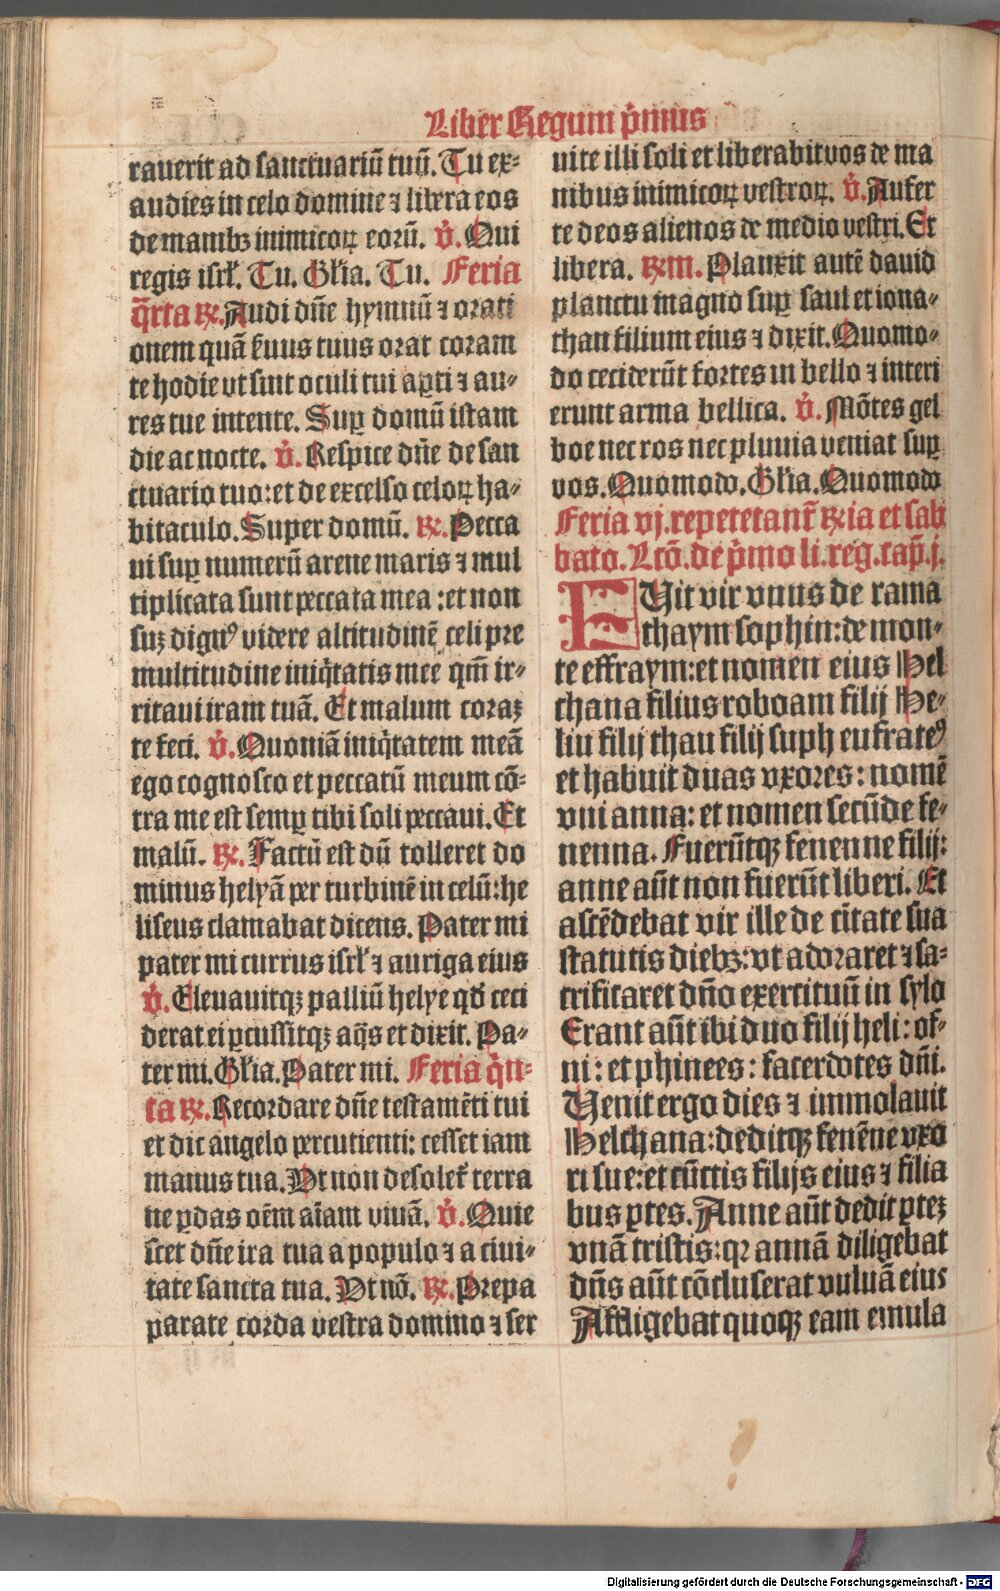 Liber Regum pͥmus
rauerit ad sanctuariū tuū. Tu ex-
audies in celo domine ⁊ libera eos
de manibꝫ inimicoꝝ eorū. v̇. Qui
regis isrl̄. Tu. Glīa. Tu. Feria
q̄rta ꝶ. Audi dn̄e hymnū ⁊ orati
onem quā ẜuus tuus orat coram
te hodie vt sint oculi tui aꝑti ⁊ au-
res tue intente. Suꝑ domū istam
die ac nocte. v̇. Respice dn̄e de san
ctuario tuo: et de excelso celoꝝ ha-
bitaculo. Super domū. ꝶ. Pecca
ui suꝑ numerū arene maris ⁊ mul
tiplicata sunt peccata mea : et non
suꝫ dignꝰ videre altitudinē celi pre
multitudine iniq̇tatis mee qm̄ ir-
ritaui iram tuā. Et malum coraꝫ
te feci. v̇. Quoniā iniq̇tatem meā
ego cognosco et peccatū meum cō-
tra me est semꝑ tibi soli peccaui. Et
malū. ꝶ. Factū est dū tolleret do
minus helyā per turbinē in celū: he
liseus clamabat dicens. Pater mi
pater mi currus isrl̄ ⁊ auriga eius
v̇. Eleuauitqꝫ palliū helye qd̄ ceci
derat ei ꝑcussitqꝫ aq̄s et dixit. Pa-
ter mi. Glīa. Pater mi. Feria q̇n-
ta ꝶ. Recordare dn̄e testamēti tui
et dic angelo percutienti: cesset iam
manus tua. Vt non desolet᷑ terra
ne ꝑdas oēm aīam viuā. v̇. Quie
scet dn̄e ira tua a populo ⁊ a ciui-
tate sancta tua. Vt nō. ꝶ. Prepa
parate corda vestra domino ⁊ ser
uite illi soli et liberabit vos de ma
nibus inimicoꝝ vestroꝝ. v̇. Aufer
te deos alienos de medio vestri. Et
libera. ꝶm. Planxit autē dauid
planctu magno suꝑ saul et iona-
than filium eius ⁊ dixit. Quomo-
do ceciderūt fortes in bello ⁊ interi
erunt arma bellica. v̇. Mōtes gel
boe nec ros nec pluuia veniat suꝑ
vos. Quomodo. Glīa. Quomodo
Feria vj. repetetant᷑ ꝶia et sab
bato. Lcō. de pͥmo li. reg. cap̄. j.
FUit vir vnus de rama
thaym sophin: de mon-
te effraym: et nomen eius Hel
chana filius roboam filij He-
liu filij thau filij suph eufrateꝰ
et habuit duas vxores : nomē
vni anna: et nomen secūde fe-
nenna. Fuerūtqꝫ fenenne filij:
anne aūt non fuerūt liberi. Et
ascēdebat vir ille de ci̇tate sua
statutis diebꝫ: vt adoraret ⁊ sa-
crificaret dn̄o exercituū in sylo
Erant aūt ibi duo filij heli : of-
ni : et phinees : sacerdotes dn̄i.
Uenit ergo dies ⁊ immolauit
Helchana: deditqꝫ fenēne vxo
ri sue: et cūctis filijs eius ⁊ filia
bus ꝑtes. Anne aūt dedit ꝑteꝫ
vnā tristis: qꝛ annā diligebat
dn̄s aūt cōcluserat vuluā eius
Affligebat quoqꝫ eam emula
Digitalisierung gefördert durch die Deutsche Forschungsgemeinschaft - DFG